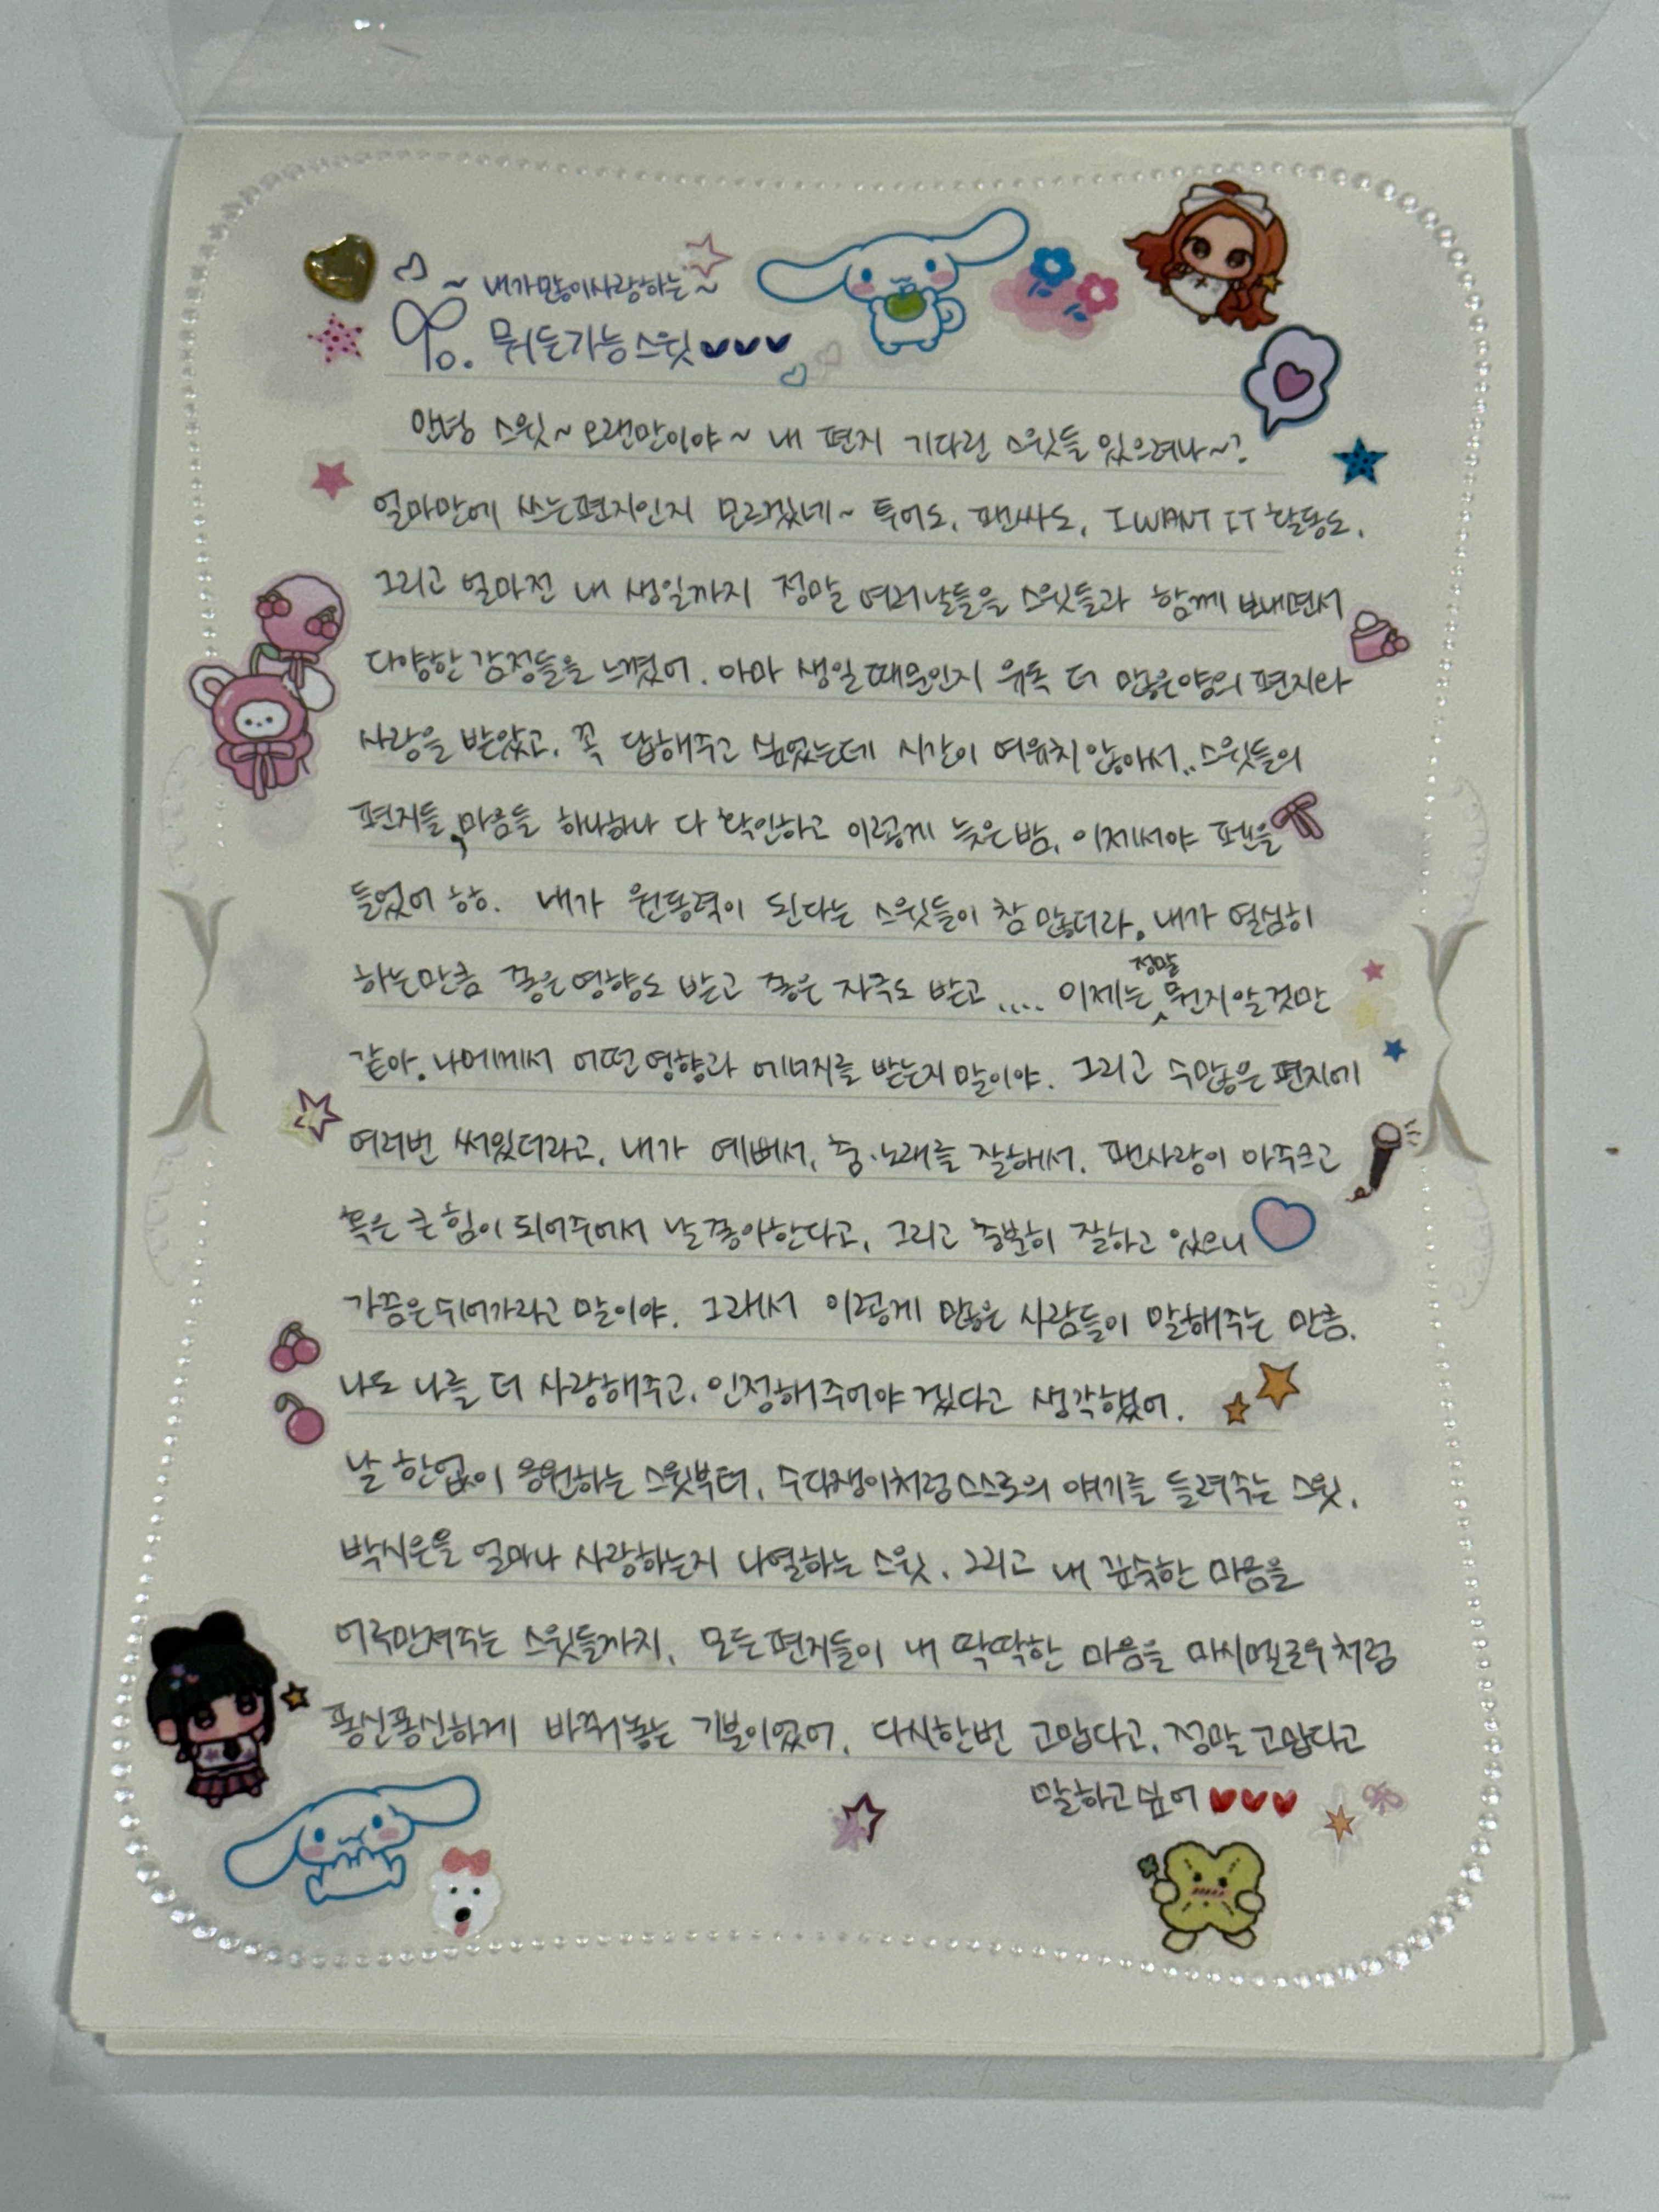 ~ 내가많이사랑하는 ~
To. 뭐든가능스윗
안녕 스윗~ 오랜만이야~ 내 편지 기다린 스윗들 있으려나~?
얼마만에 쓰는편지인지 모르겠네~ 투어도, 팬싸도, I WANT IT 활동도,
그리고 얼마전 내 생일까지 정말 여러날들을 스윗들과 함께 보내면서
다양한 감정들을 느꼈어. 아마 생일때문인지 유독 더 많은양의 편지와
사랑을 받았고, 꼭 답해주고 싶었는데 시간이 여유치 않아서.. 스윗들의
편지들, 마음들 하나하나 다 확인하고 이렇게 늦은밤, 이제서야 펜을
들었어 ㅎㅎ. 내가 원동력이 된다는 스윗들이 참 많더라. 내가 열심히
하는만큼 좋은영향도 받고 좋은 자극도 받고 .... 이제는 정말 뭔지알것만
같아. 나에게서 어떤영향과 에너지를 받는지말이야. 그리고 수많은편지에
여러번 써있더라고, 내가 예뻐서, 춤·노래를 잘해서, 팬사랑이 아주크고
혹은 큰힘이 되어주어서 날좋아한다고, 그리고 충분히 잘하고 있으니
가끔은쉬어가라고 말이야. 그래서 이렇게 많은 사람들이 말해주는 만큼,
나도 나를 더 사랑해주고, 인정해주어야겠다고 생각했어.
날 한없이 응원하는 스윗부터, 수다쟁이처럼 스스로의 얘기를 들려주는 스윗,
박시은을 얼마나 사랑하는지 나열하는 스윗, 그리고 내 깊숙한 마음을
어루만져주는 스윗들까지, 모든편지들이 내 딱딱한 마음을 마시멜로우처럼
퐁신퐁신하게 바꿔놓는 기분이었어. 다시한번 고맙다고, 정말고맙다고
말하고싶어